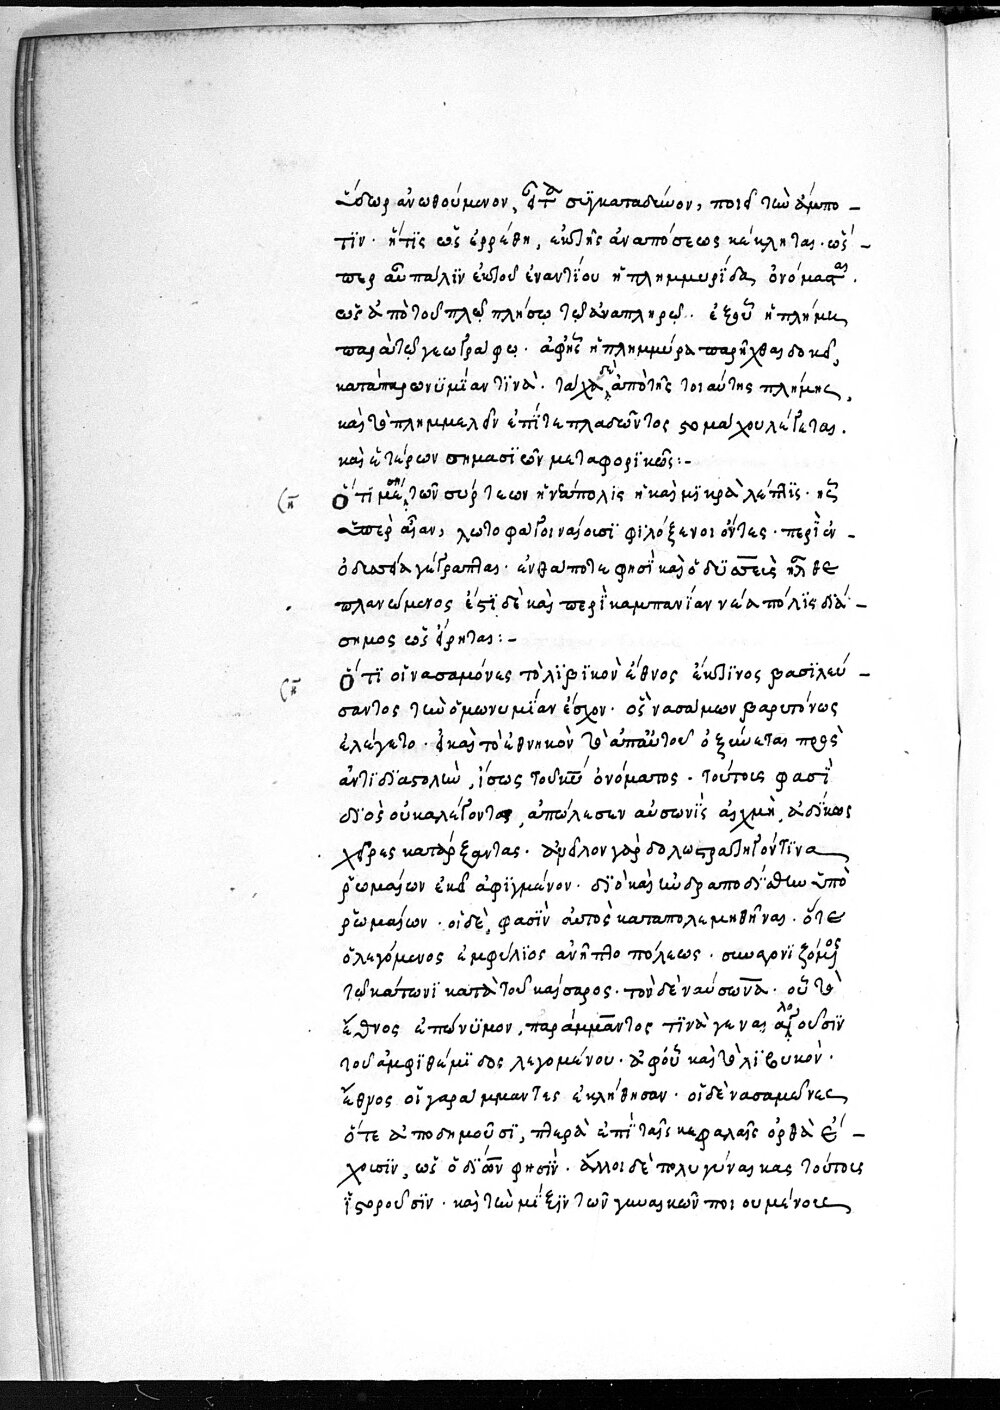 ὕδωρ ἀνωθούμενον, εἶτα συγκαταδεύον, ποιεῖ τὴν ἄμπο-
τιν· ἥτις ὡς ἐρρέθη, ἐκ τῆς ἀναπόσεως κέκληται· ὥσ-
περ αὖ πάλιν ἐκ τοῦ ἐναντίου ἡ πλημμυρίδα ὀνόμασται.
ὡς ἀπὸ τοῦ πλῶ πλήσω τὸ ἀναπληρῶ. ἐξ οὗ ἡ πλήμη
παρὰ τῷ γεωγράφῳ. ἀφ' ἧς ἡ πλημμύρα παρῆχθαι δοκεῖ,
κατὰ παρωνυμίαν τινά. τάχα δὲ ἀπὸ τῆς τοιαύτης πλήμης,
καὶ τὸ πλημμελεῖν ἐπὶ τε πλαδῶντος στομάχου λέγεται.
καὶ ἑτέρων σημασιῶν μεταφορικῶς:-
Ὅτι μέση τῶν σύρτεων ἡ νεάπολις ἡ καὶ μικρὰ λέπτις. ἧς
ὕπερ αἶαν, λωτοφάγοι ναίουσι φιλόξενοι ὄντες. περὶ ὧν
ὀδυσσεία γέγραπται. ἔνθά ποτε φησὶ καὶ ὀδυσσεὺς ἦλθε
πλανώμενος ἔστι δὲ καὶ περὶ καμπανίαν νεάπολις διά-
σημος ὡς εἴρηται:-
Ὅτι οἱ νασαμόνες τὸ λιβικὸν ἔθνος ἔκ τινος βασιλεύ-
σαντος τὴν ὁμωνυμίαν ἔσχον. ὃς νασάμων βαρυτόνως
ἐλέγετο. εἰ καὶ τὸ ἐθνηκὸν τὸ ἀπ' αὐτοῦ ὀξύνεται πρὸς
ἀντιδιαστολὴν, ἴσως τοῦ κυρίου ὀνόματος. τούτους φασὶ
διὸς οὐκ ἀλέγοντας, ἀπώλεσεν αὐσωνὶς αἰχμὴ, ἀδίκως
χεῖρας κατάρξαντας. ἀνεῖλον γὰρ δόλω στρατηγόν τινα
ῥωμαίων ἐκεῖ ἀφιγμένον. διὸ καὶ ἠνδραποδίσθην ὑπὸ
ῥωμαίων. οἱ δὲ, φασὶν αὐτοὺς καταπολεμηθῆναι. ὅτε
ὁ λεγόμενος ἐμφύλιος ἀνήπλο πόλεμος. συναγωνιζόμενος
τῷ κάτωνι κατὰ τοῦ καίσαρος. τὸν δὲ ναύσωνα. οὗ τὸ
ἔθνος ἐπώνυμον, γαράμμαντος τινὰ γένναι λέγουσιν
τοῦ ἀμφιθέμιδος λεγομένου. ἀφ' οὗ καὶ τὸ λιβυκὸν
ἔθνος οἱ γαράμμαντες ἐκλήθησαν. οἱ δὲ νασαμῶνες
ὅτε ἀποδημοῦσι, πτερὰ ἐπὶ ταῖς κεφαλαῖς ὀρθὰ ἔ-
χουσιν, ὡς ὁ δίων φησίν. ἄλλοι δὲ πολυγύναικας τούτους
ἱστοροῦσιν. καὶ τὴν μίξιν τῶν γυναικῶν ποιουμένους